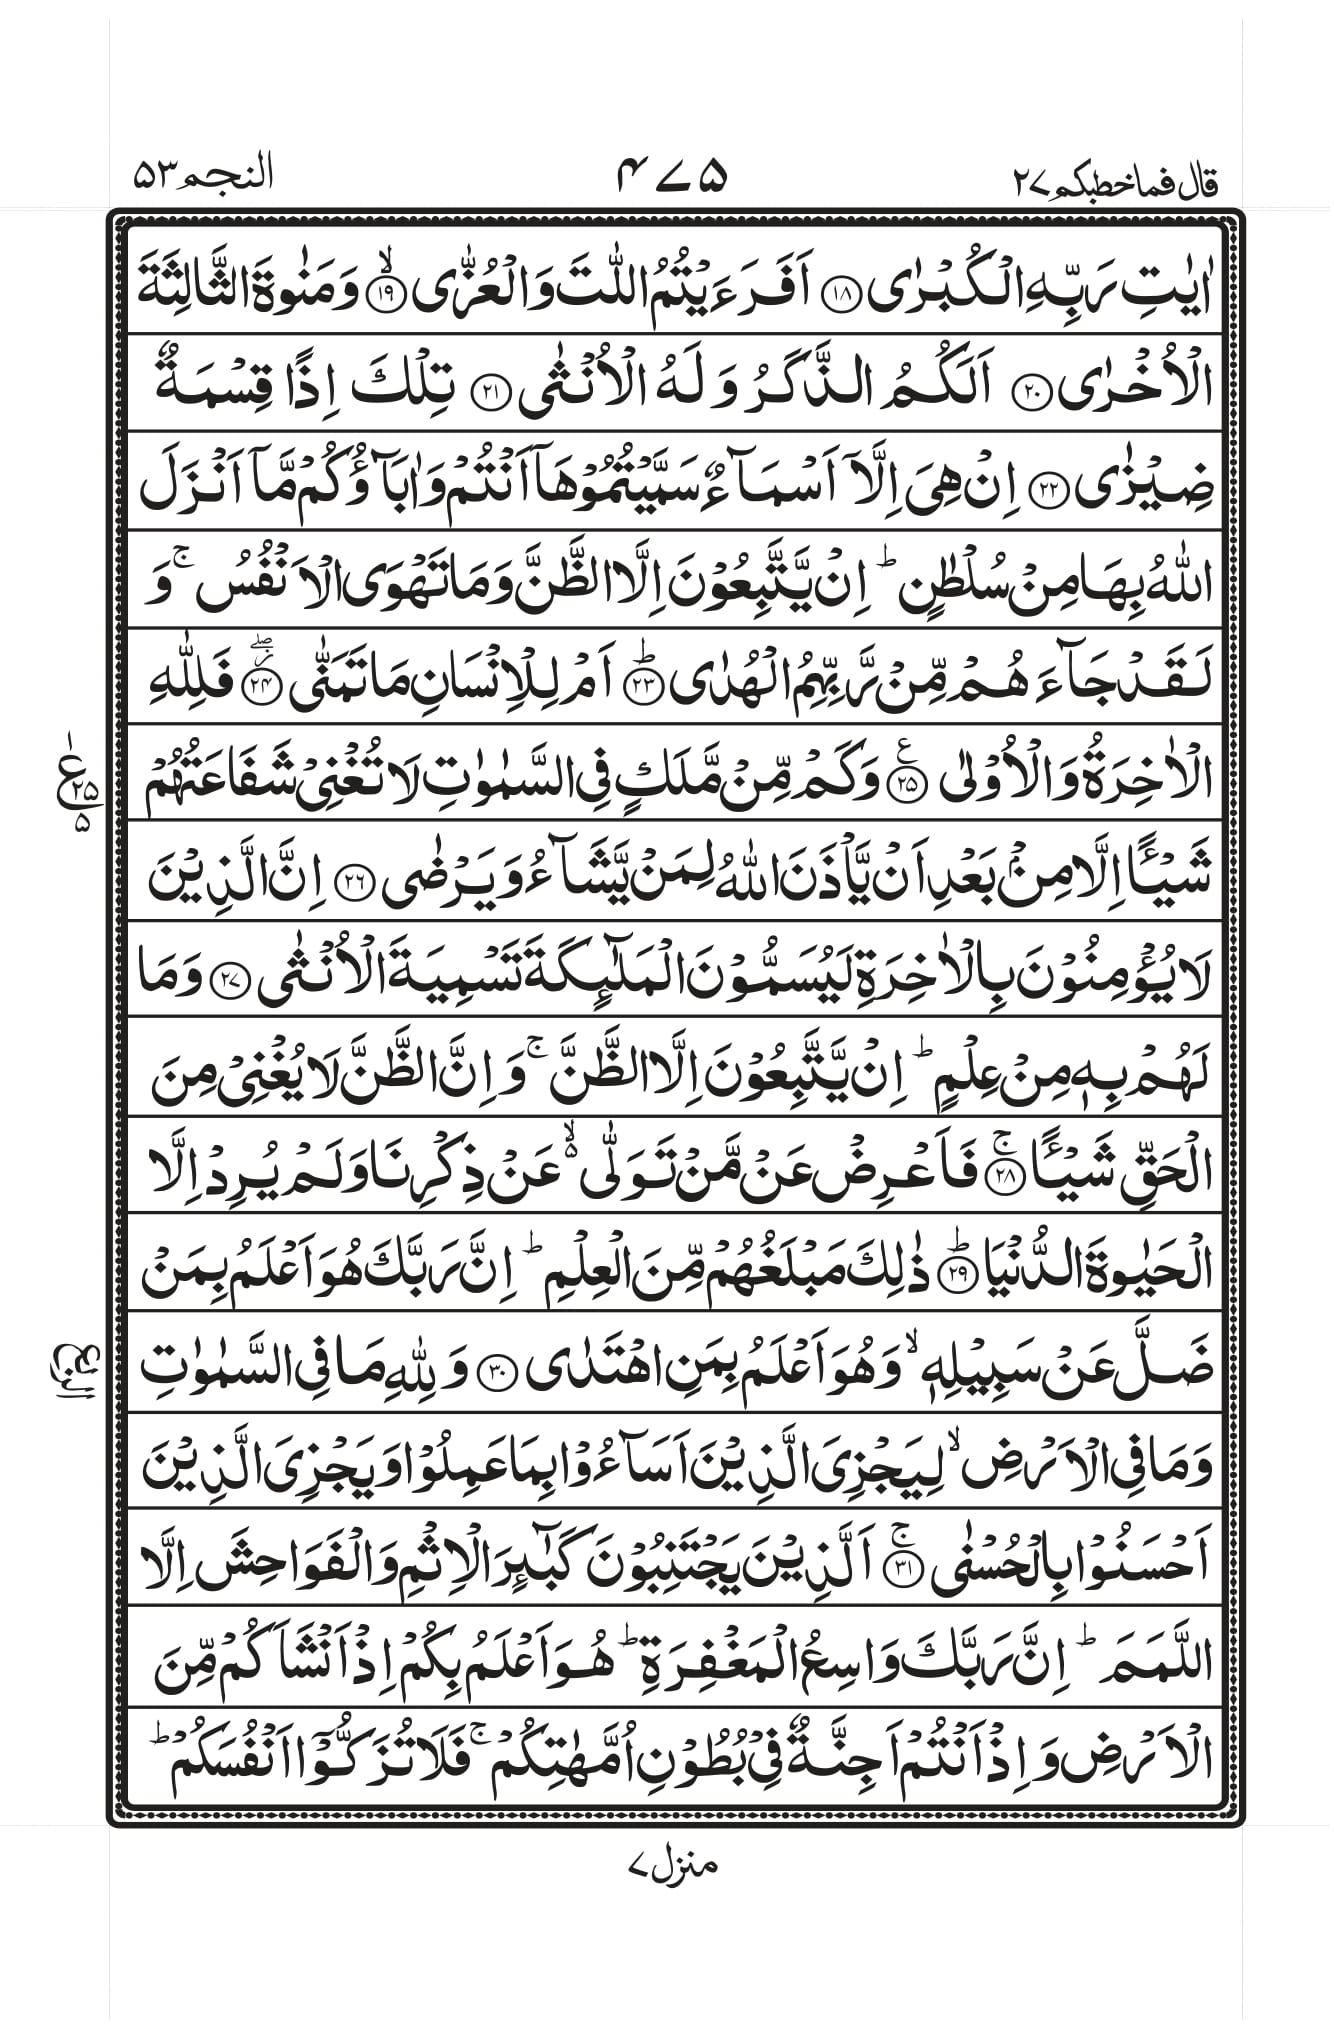 قال فما خطبکم ۲۷
۴۷۵
النجم ۵۳
اٰیٰتِ رَبِّهِ الْكُبْرٰى ۝۱۸ اَفَرَءَیْتُمُ اللّٰتَ وَالْعُزّٰى ۝۱۹ۙ وَمَنٰوةَ الثَّالِثَةَ
الْاُخْرٰى ۝۲۰ اَلَكُمُ الذَّكَرُ وَلَهُ الْاُنْثٰى ۝۲۱ تِلْكَ اِذًا قِسْمَةٌ
ضِیْزٰى ۝۲۲ اِنْ هِیَ اِلَّاۤ اَسْمَآءٌ سَمَّیْتُمُوْهَاۤ اَنْتُمْ وَاٰبَآؤُكُمْ مَّاۤ اَنْزَلَ
اللّٰهُ بِهَا مِنْ سُلْطٰنٍ ؕ اِنْ یَّتَّبِعُوْنَ اِلَّا الظَّنَّ وَمَا تَهْوَى الْاَنْفُسُ ۚ وَ
لَقَدْ جَآءَهُمْ مِّنْ رَّبِّهِمُ الْهُدٰى ۝۲۳ؕ اَمْ لِلْاِنْسَانِ مَا تَمَنّٰى ۝۲۴ؗۖ فَلِلّٰهِ
الْاٰخِرَةُ وَالْاُوْلٰى ۝۲۵ ع وَكَمْ مِّنْ مَّلَكٍ فِی السَّمٰوٰتِ لَا تُغْنِیْ شَفَاعَتُهُمْ
۱
ع ۲۵
۵
شَیْـًٔا اِلَّا مِنْۢ بَعْدِ اَنْ یَّاْذَنَ اللّٰهُ لِمَنْ یَّشَآءُ وَیَرْضٰى ۝۲۶ اِنَّ الَّذِیْنَ
لَا یُؤْمِنُوْنَ بِالْاٰخِرَةِ لَیُسَمُّوْنَ الْمَلٰٓىِٕكَةَ تَسْمِیَةَ الْاُنْثٰى ۝۲۷ وَمَا
لَهُمْ بِهٖ مِنْ عِلْمٍ ؕ اِنْ یَّتَّبِعُوْنَ اِلَّا الظَّنَّ ۚ وَاِنَّ الظَّنَّ لَا یُغْنِیْ مِنَ
الْحَقِّ شَیْـًٔا ۝۲۸ۚ فَاَعْرِضْ عَنْ مَّنْ تَوَلّٰى ۙ۬ عَنْ ذِكْرِنَا وَلَمْ یُرِدْ اِلَّا
الْحَیٰوةَ الدُّنْیَا ۝۲۹ؕ ذٰلِكَ مَبْلَغُهُمْ مِّنَ الْعِلْمِ ؕ اِنَّ رَبَّكَ هُوَ اَعْلَمُ بِمَنْ
ضَلَّ عَنْ سَبِیْلِهٖ ۙ وَهُوَ اَعْلَمُ بِمَنِ اهْتَدٰى ۝۳۰ وَلِلّٰهِ مَا فِی السَّمٰوٰتِ
وَمَا فِی الْاَرْضِ ۙ لِیَجْزِیَ الَّذِیْنَ اَسَآءُوْا بِمَا عَمِلُوْا وَیَجْزِیَ الَّذِیْنَ
اَحْسَنُوْا بِالْحُسْنٰى ۝۳۱ۚ اَلَّذِیْنَ یَجْتَنِبُوْنَ كَبٰٓىِٕرَ الْاِثْمِ وَالْفَوَاحِشَ اِلَّا
اللَّمَمَ ؕ اِنَّ رَبَّكَ وَاسِعُ الْمَغْفِرَةِ ؕ هُوَ اَعْلَمُ بِكُمْ اِذْ اَنْشَاَكُمْ مِّنَ
الْاَرْضِ وَاِذْ اَنْتُمْ اَجِنَّةٌ فِیْ بُطُوْنِ اُمَّهٰتِكُمْ ۚ فَلَا تُزَكُّوْۤا اَنْفُسَكُمْ ؕ
منزل ۷